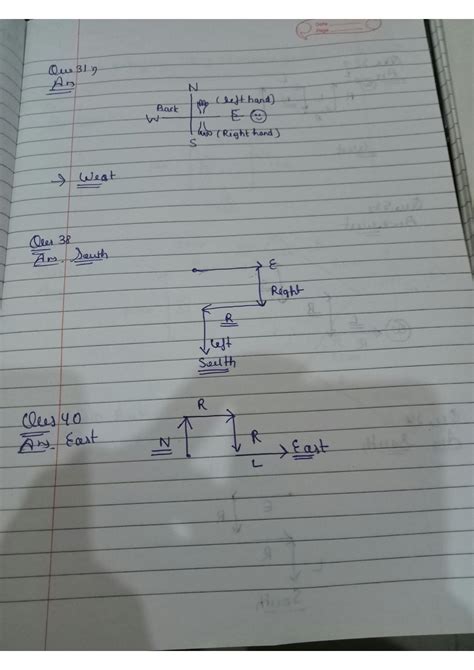 Date
Page
Ques 31)
Ans
N
(left hand)
Back
W
E
(Right hand)
S
→ West
Ques 38
Ans. South
E
Right
R
left
South
Ques 40
Ans. East
R
N
R
L
East